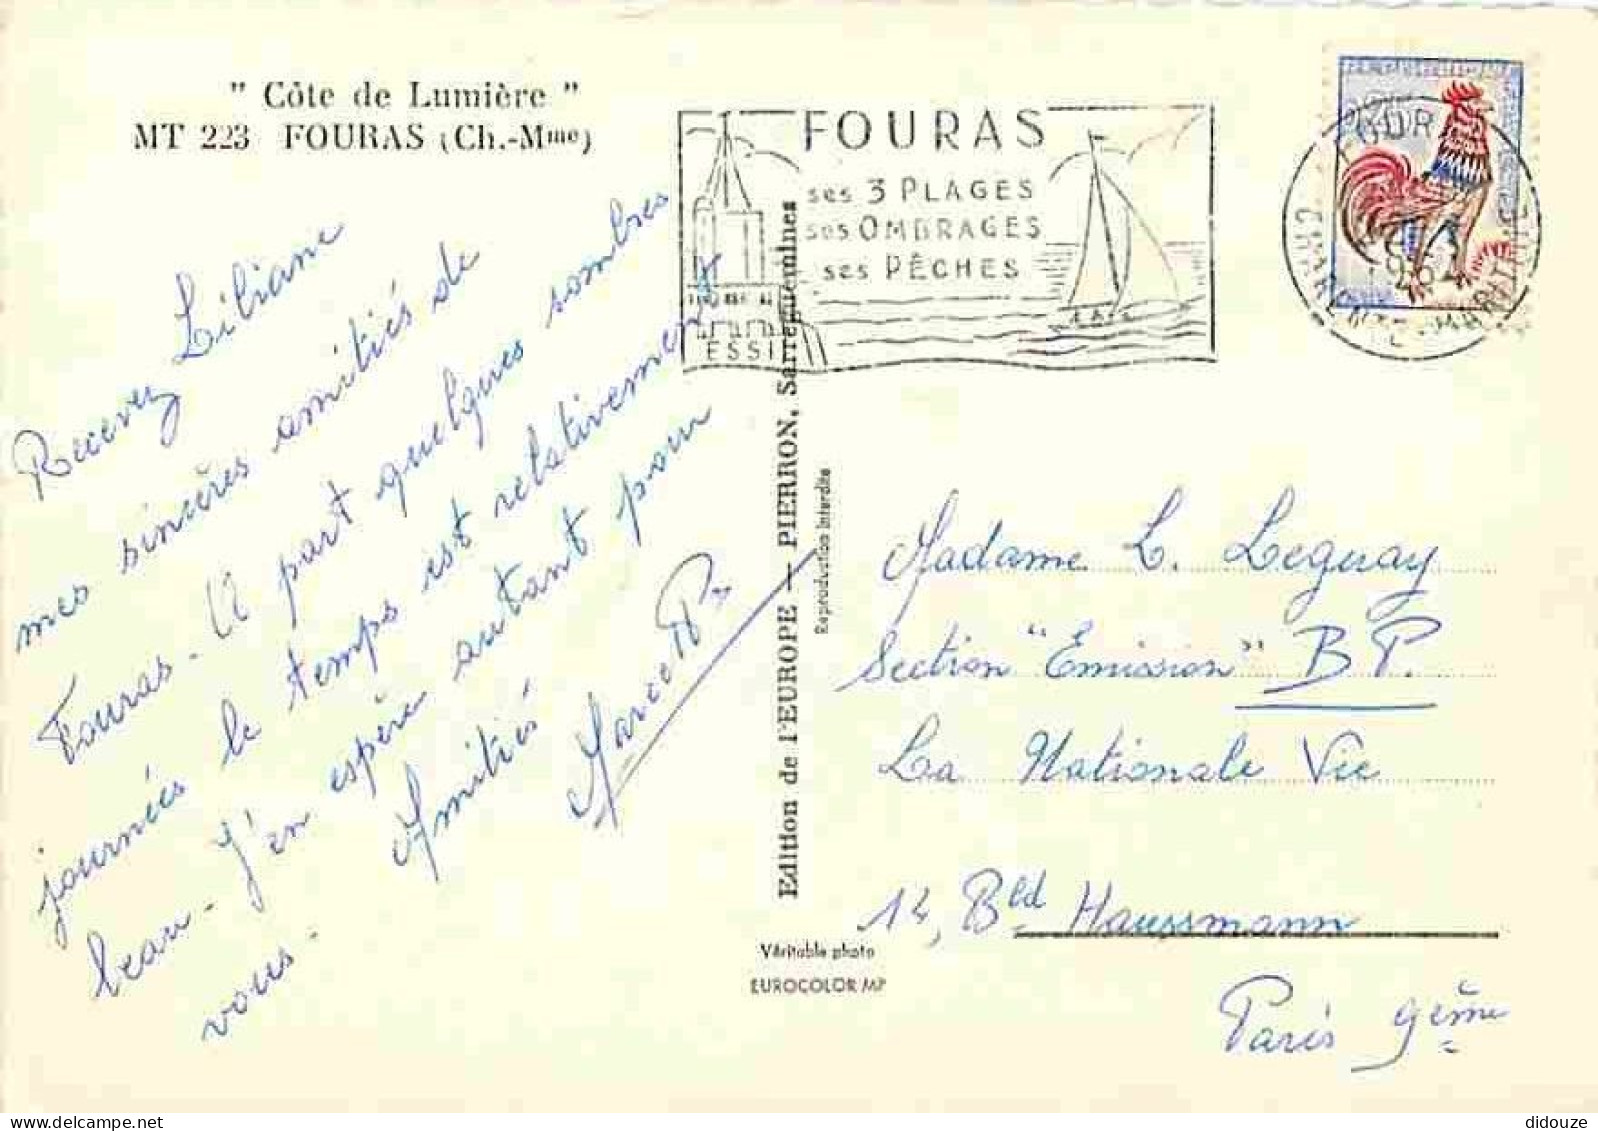 " Côte de Lumière "
MT 223 FOURAS (Ch.-Mme)
FOURAS
ses 3 PLAGES
ses OMBRAGES
ses PÊCHES
ESSI
Recevez Liliane
mes sincères amitiés de
Fouras - A part quelques sombres
journées le temps est relativement
beau - J'en espère autant pour
vous -
Amitiés
Edition de l'EUROPE — PIERRON, Sarreguemines
Reproduction interdite
Madame L. Leguay
Section "Emission" B P.
La Nationale Vie
Bld Haussmann
Paris 9ème
Véritable photo
EUROCOLOR MP
didouze